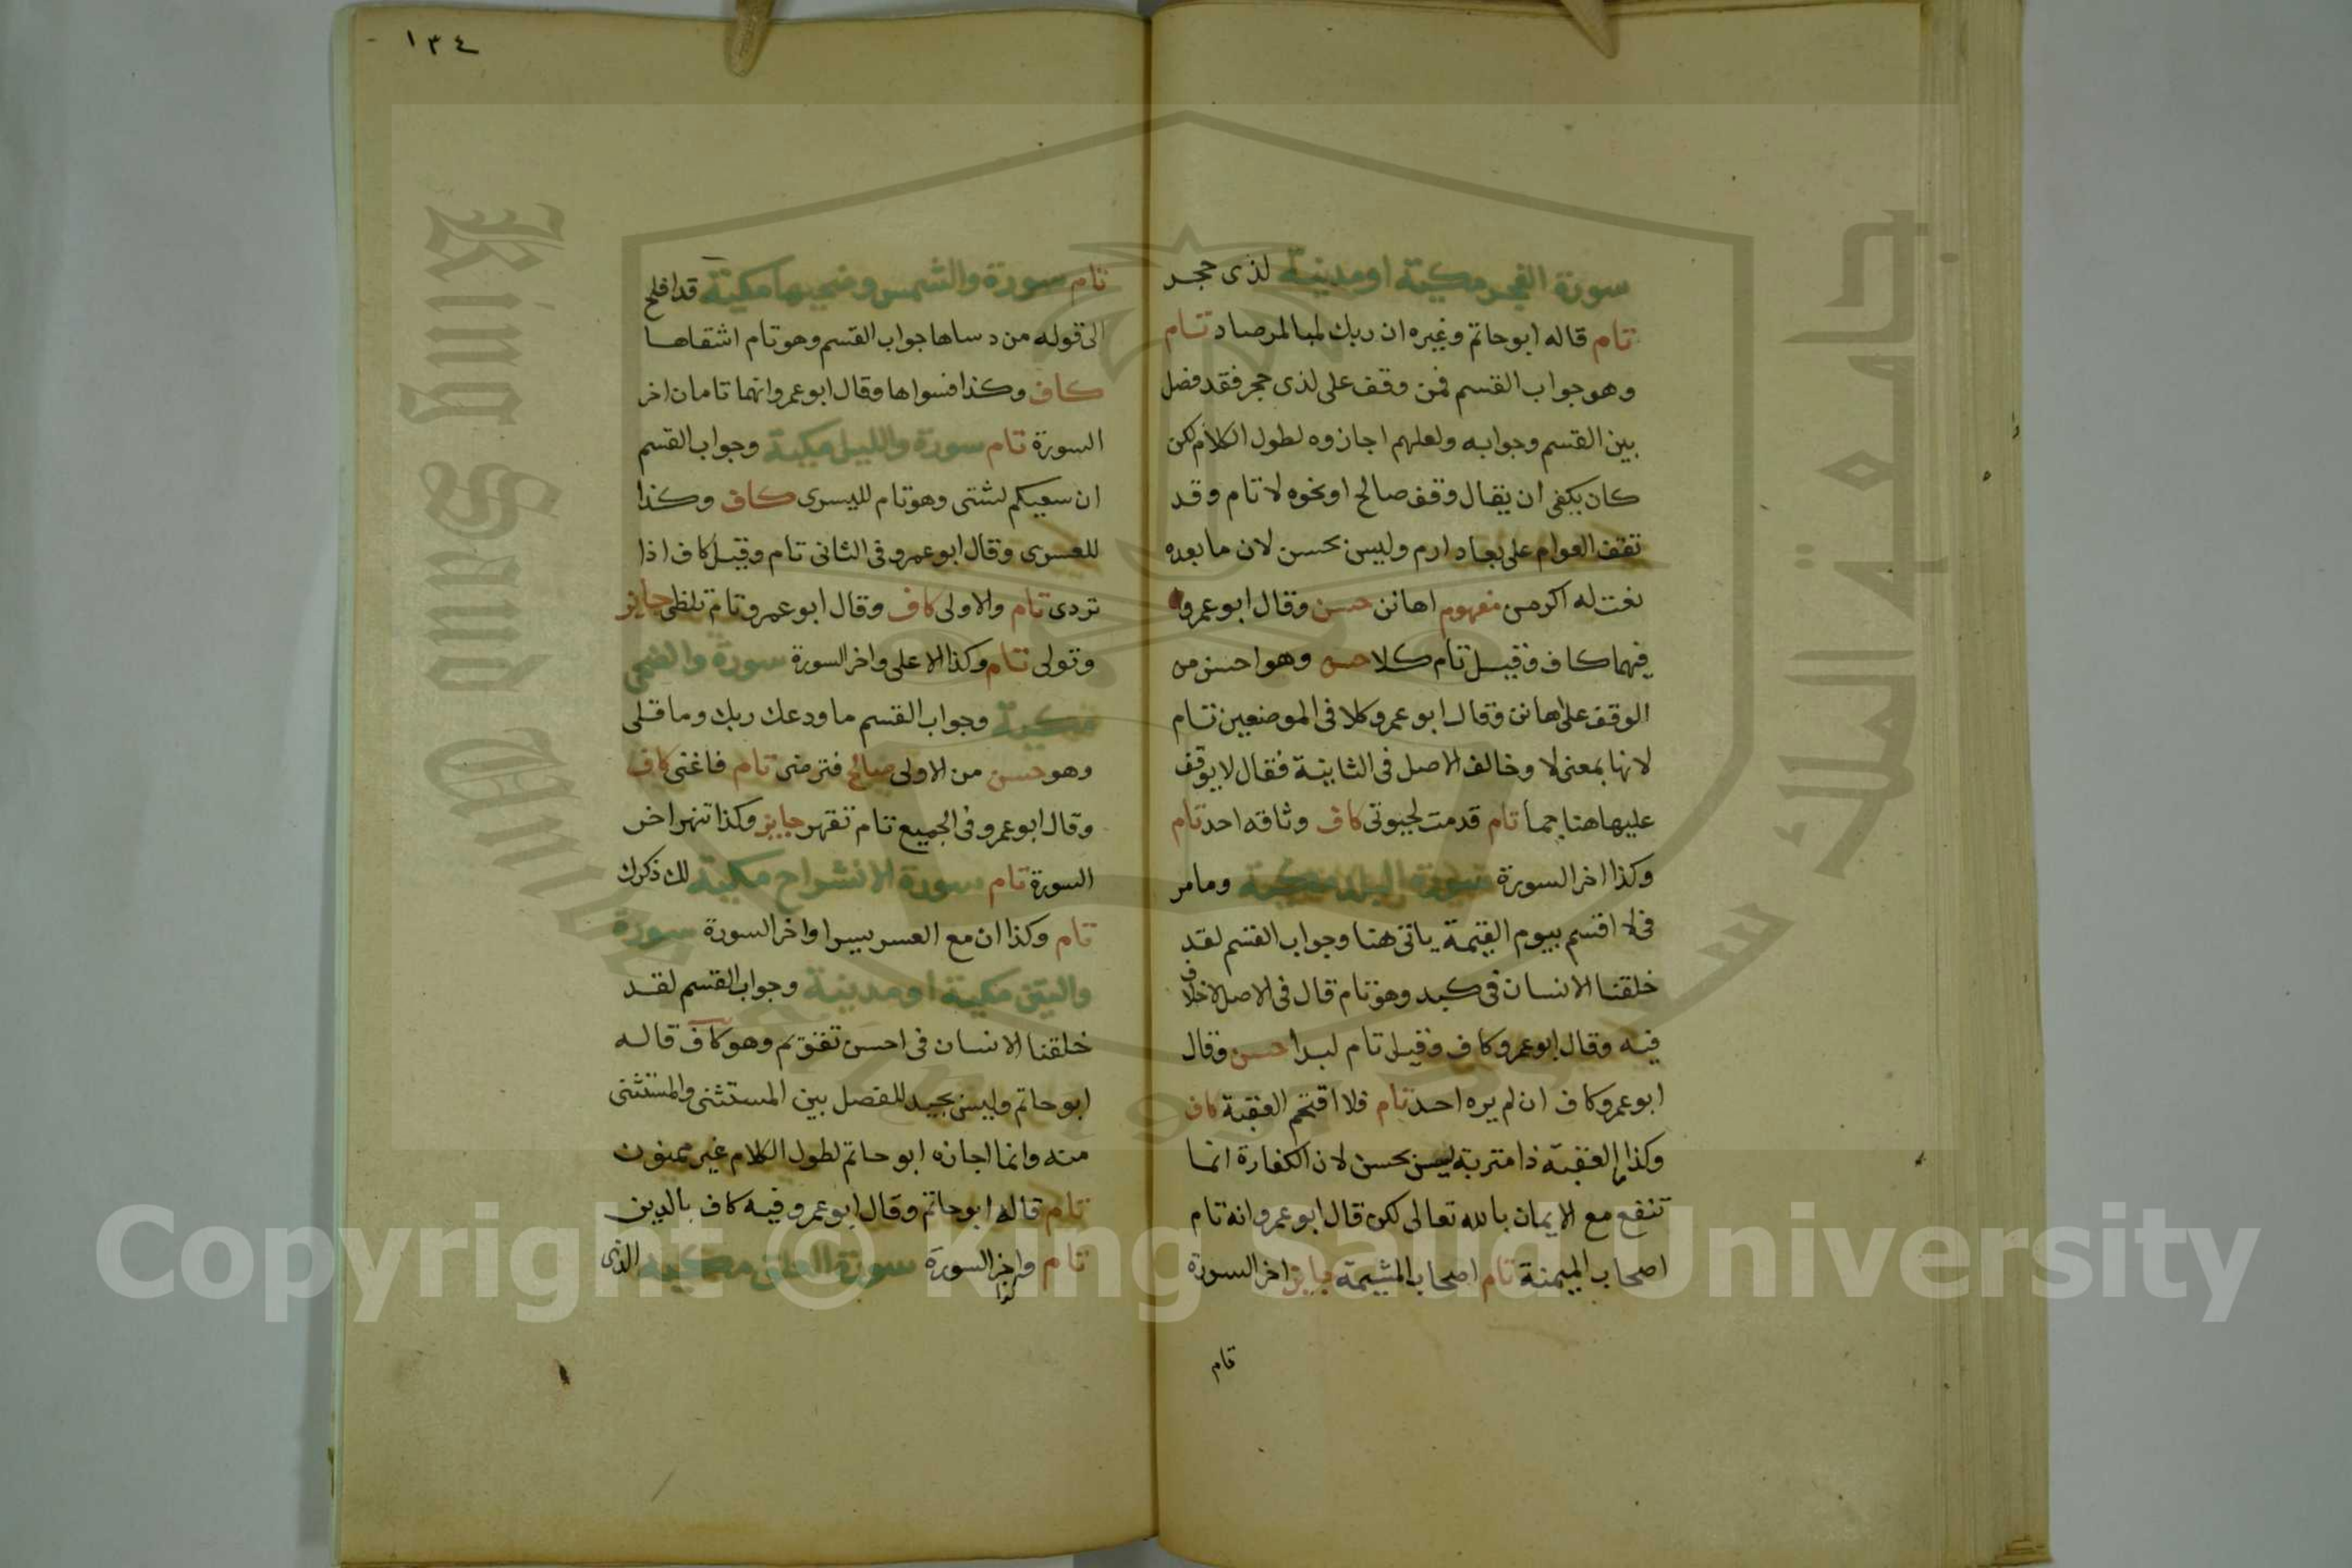 سورة الفجر مكية او مدنية لذى حجر
تام قاله ابو حاتم وغيره ان ربك لبالمرصاد تام
وهو جواب القسم فمن وقف على لذى حجر فقد فصل
بين القسم وجوابه ولعلهم اجازوه لطول الكلام لكن
كان يكفى ان يقال وقف صالح او نحوه لا تام وقد
تقف العوام على بعاد ارم وليس بحسن لان ما بعده
نعت له اكرمن مفهوم اهانن حسن وقال ابو عمرو
فيهما كاف وقيل تام كلا حسن وهو احسن من
الوقف على اهانن وقال ابو عمرو كلا فى الموضعين تام
لانها بمعنى لا وخالف الاصل فى الثانية فقال لا يوقف
عليها هنا جما تام قدمت لحيوتى كاف وثاقه احد تام
وكذا اخر السورة سورة البلد مكية وما مر
فى لا اقسم بيوم القيمة ياتى هنا وجواب القسم لقد
خلقنا الانسان فى كبد وهو تام قال فى الاصل لا خلاف
فيه وقال ابو عمرو كاف وقيل تام لبدا حسن وقال
ابو عمرو كاف ان لم يره احد تام فلا اقتحم العقبة كاف
وكذا العقبة ذا متربة ليس بحسن لان الكفارة انما
تنفع مع الايمان بالله تعالى لكن قال ابو عمرو انه تام
اصحاب الميمنة تام اصحاب المشيمة جايز اخر السورة
تام
١٣٤
تام سورة والشمس وضحيها مكية قد افلح
الى قوله من دساها جواب القسم وهو تام اشقاها
كاف وكذا فسواها وقال ابو عمرو انهما تامان اخر
السورة تام سورة والليل مكية وجواب القسم
ان سعيكم لشتى وهو تام لليسرى كاف وكذا
للعسرى وقال ابو عمرو فى الثانى تام وقيل كاف اذا
تردى تام والاولى كاف وقال ابو عمرو تام تلظى جايز
وتولى تام وكذا الاعلى واخر السورة سورة والضحى
مكية وجواب القسم ما ودعك ربك وما قلى
وهو حسن من الاولى صالح فترضى تام فاغنى كاف
وقال ابو عمرو فى الجميع تام تقهر جايز وكذا تنهر اخر
السورة تام سورة الانشراح مكية لك ذكرك
تام وكذا ان مع العسر يسرا واخر السورة سورة
والتين مكية او مدنية وجواب القسم لقد
خلقنا الانسان فى احسن تقويم وهو كاف قاله
ابو حاتم وليس بجيد للفصل بين المستثنى والمستثنى
منه وانما اجازه ابو حاتم لطول الكلام غير ممنون
تام قاله ابو حاتم وقال ابو عمرو فيه كاف بالدين
تام واخر السورة سورة العلق مكية الذى
كذا
جامعة الملك سعود
King Saud University
1957
Copyright © King Saud University